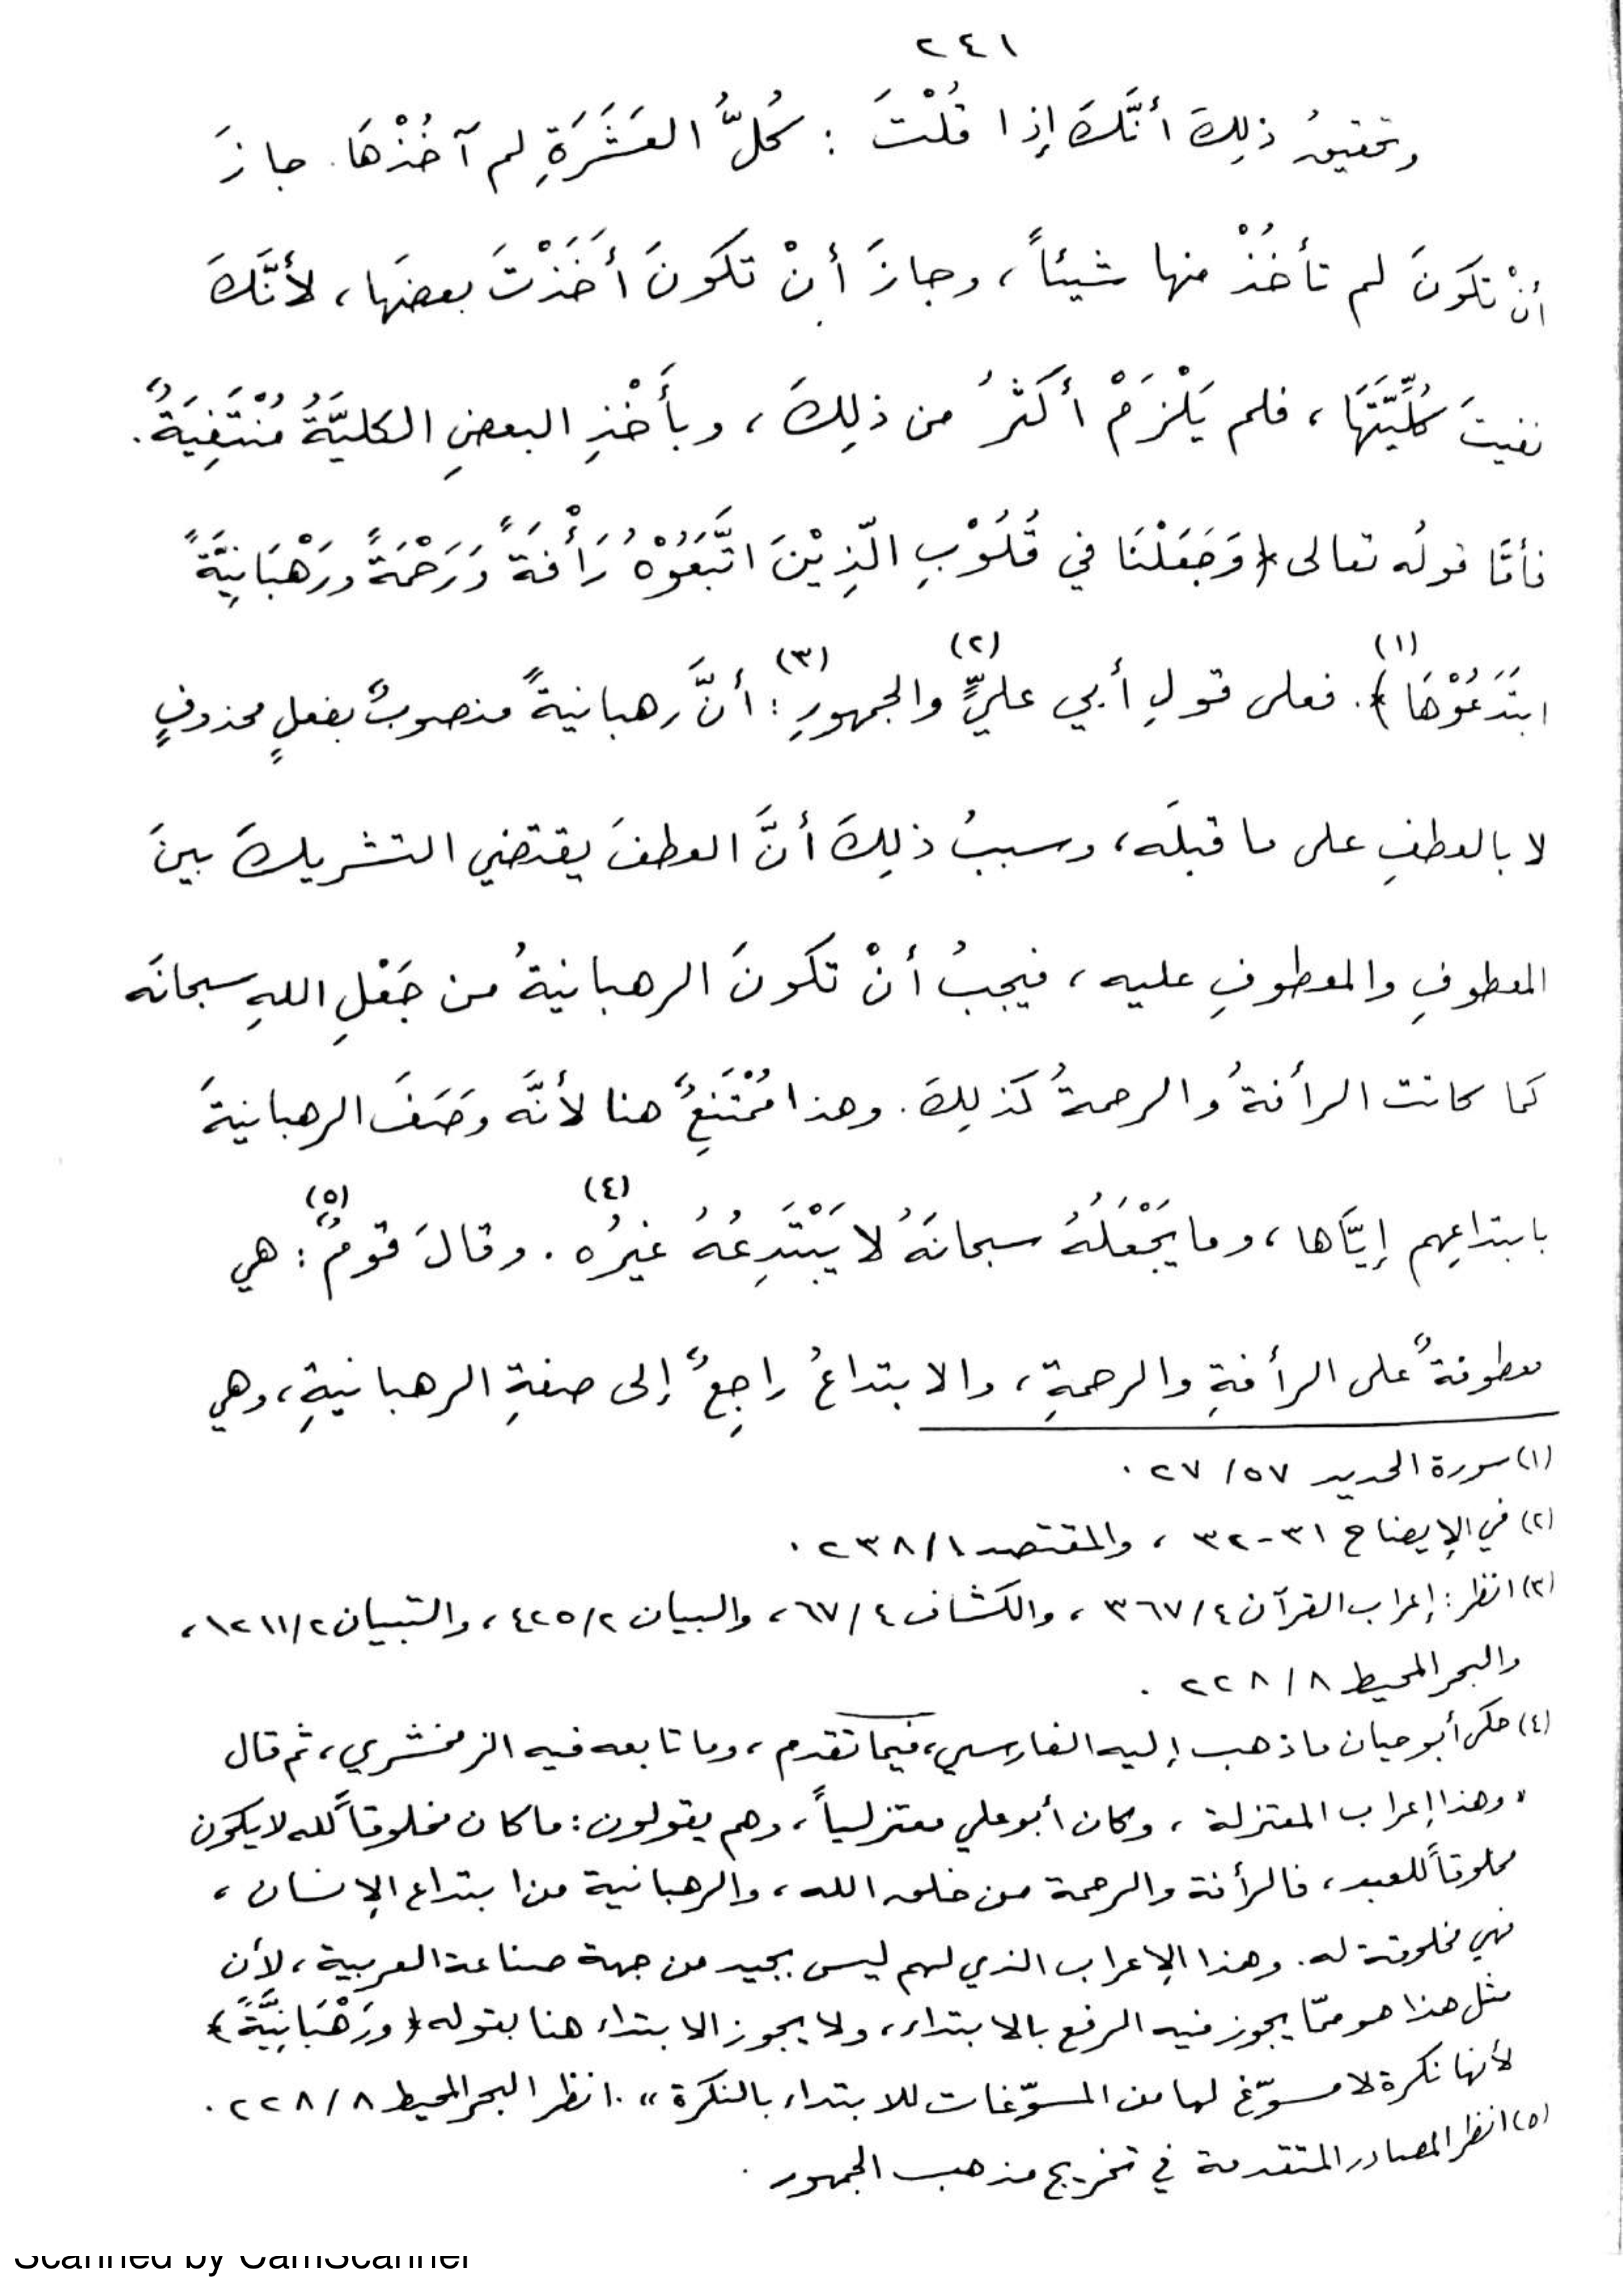 ٢٤١
وتحقيقُ ذلِكَ أنَّكَ إذا قُلْتَ : كُلُّ العَشَرَةِ لم آخُذْهَا. جازَ
أنْ تكونَ لم تأخُذْ منها شيئاً، وجازَ أنْ تكونَ أخَذْتَ بعضَها، لأنَّكَ
نفيتَ كُلِّيَّتَهَا، فلم يَلْزَمْ أكثَرُ من ذلِكَ، وبأَخْذِ البعضِ الكليَّةُ مُنْتَفِيَةٌ.
فأمّا قولُه تعالى ﴿وَجَعَلْنَا في قُلُوْبِ الّذِيْنَ اتَّبَعُوْهُ رَأْفَةً وَرَحْمَةً ورَهْبَانِيَّةً
ابتَدَعُوْهَا﴾(١). فعلى قولِ أبي عليٍّ(٢) والجمهورِ(٣): أنَّ رهبانيةً منصوبٌ بفعلٍ محذوفٍ
لا بالعطفِ على ما قبلَه، وسببُ ذلِكَ أنَّ العطفَ يقتضي التشريكَ بينَ
المعطوفِ والمعطوفِ عليه، فيجبُ أنْ تكونَ الرهبانيةُ من جَعْلِ اللهِ سبحانَه
كما كانت الرأفةُ والرحمةُ كذلِكَ. وهذا مُمْتَنِعٌ هنا لأنَّه وصَفَ الرهبانيةَ
بابتداعِهم إيَّاها، وما يَجْعَلُهُ سبحانَهُ لا يَبْتَدِعُهُ غيرُه(٤). وقالَ قومٌ(٥): هي
معطوفةٌ على الرأفةِ والرحمةِ، والابتداعُ راجِعٌ إلى صفةِ الرهبانيةِ، وهي
(١) سورة الحديد ٥٧/ ٢٧ .
(٢) في الإيضاح ٣١-٣٢ ، والمقتصد ٢٣٨/١ .
(٣) انظر: إعراب القرآن ٣٦٧/٤ ، والكشاف ٦٧/٤ ، والبيان ٤٢٥/٢ ، والتبيان ١٢١١/٢ ،
والبحر المحيط ٢٢٨/٨ .
(٤) حكى أبو حيان ما ذهب إليه الفارسي، فيما تقدم ، وما تابعه فيه الزمخشري، ثم قال
"وهذا إعراب المعتزلة ، وكان أبو علي معتزلياً، وهم يقولون: ما كان مخلوقاً لله لا يكون
مخلوقاً للعبد، فالرأفة والرحمة من خلق الله، والرهبانية من ابتداع الإنسان ،
فهي مخلوقة له. وهذا الإعراب الذي لهم ليس بجيد من جهة صناعة العربية، لأن
مثل هذا هو ممّا يجوز فيه الرفع بالابتداء، ولا يجوز الابتداء هنا بقوله ﴿ورَهْبَانِيَّةً﴾
لأنها نكرة لا مسوّغ لها من المسوّغات للابتداء بالنكرة". انظر البحر المحيط ٢٢٨/٨ .
(٥) انظر المصادر المتقدمة في تخريج مذهب الجمهور .
Scanned by CamScanner